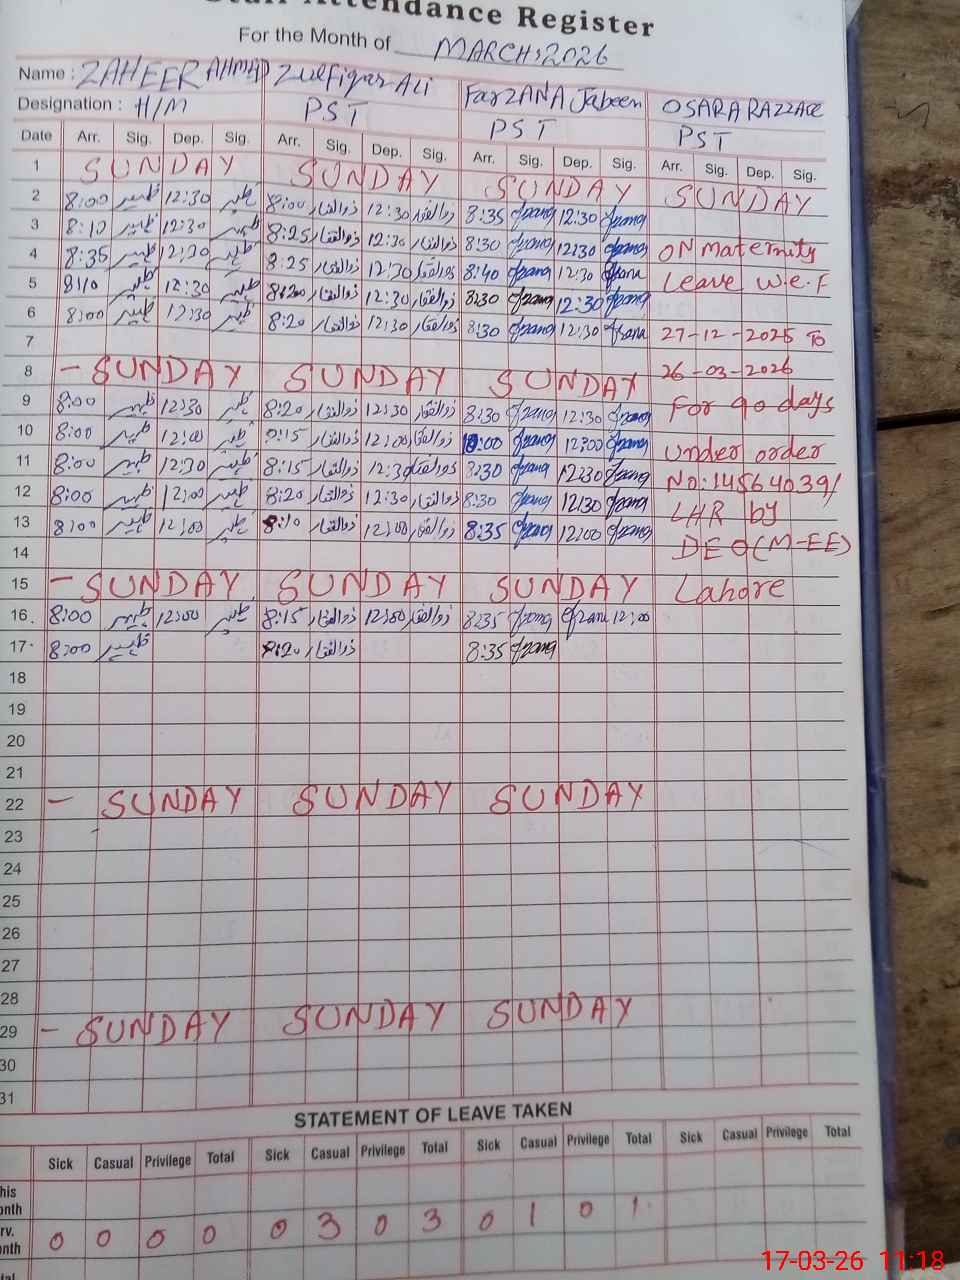 Staff Attendance Register
For the Month of MARCH, 2026
Name : ZAHEER AHMAD Zulfiqar Ali FarZANA Jabeen OSARA RAZZAGE
Designation : H/M PST PST PST
Date Arr. Sig. Dep. Sig. Arr. Sig. Dep. Sig. Arr. Sig. Dep. Sig. Arr. Sig. Dep. Sig.
1 SUNDAY SUNDAY SUNDAY SUNDAY
2 8:00 ظہیر 12:30 ظہیر 8:00 ذوالفقار 12:30 ذوالفقار 8:35 12:30
3 8:10 ظہیر 12:30 ظہیر 8:25 ذوالفقار 12:30 ذوالفقار 8:30 12:30 ON Maternity
4 8:35 ظہیر 12:30 ظہیر 8:25 ذوالفقار 12:30 ذوالفقار 8:40 12:30 Leave w.e.f
5 8:10 ظہیر 12:30 ظہیر 8:20 ذوالفقار 12:30 ذوالفقار 8:30 12:30
6 8:00 ظہیر 12:30 ظہیر 8:20 ذوالفقار 12:30 ذوالفقار 8:30 12:30 27-12-2025 To
7
8 - SUNDAY SUNDAY SUNDAY 26-03-2026
9 8:00 ظہیر 12:30 ظہیر 8:20 ذوالفقار 12:30 ذوالفقار 8:30 12:30 For 90 days
10 8:00 ظہیر 12:00 ظہیر 8:15 ذوالفقار 12:00 ذوالفقار 12:00 under order
11 8:00 ظہیر 12:30 ظہیر 8:15 ذوالفقار 12:30 ذوالفقار 8:30 12:30 No: 14564039/
12 8:00 ظہیر 12:00 ظہیر 8:20 ذوالفقار 12:30 ذوالفقار 8:30 12:30 LHR by
13 8:00 ظہیر 12:00 ظہیر 8:10 ذوالفقار 12:00 ذوالفقار 8:35 12:00
14 DEO(M-EE)
15 - SUNDAY SUNDAY SUNDAY Lahore
16 8:00 ظہیر 12:00 ظہیر 8:15 ذوالفقار 12:00 ذوالفقار 8:35 12:00
17 8:00 ظہیر 8:20 ذوالفقار 8:35
18
19
20
21
22 - SUNDAY SUNDAY SUNDAY
23
24
25
26
27
28
29 - SUNDAY SUNDAY SUNDAY
30
31
STATEMENT OF LEAVE TAKEN
Sick Casual Privilege Total Sick Casual Privilege Total Sick Casual Privilege Total Sick Casual Privilege Total
his
onth
rv.
onth 0 0 0 0 0 3 0 3 0 1 0 1
17-03-26 11:18